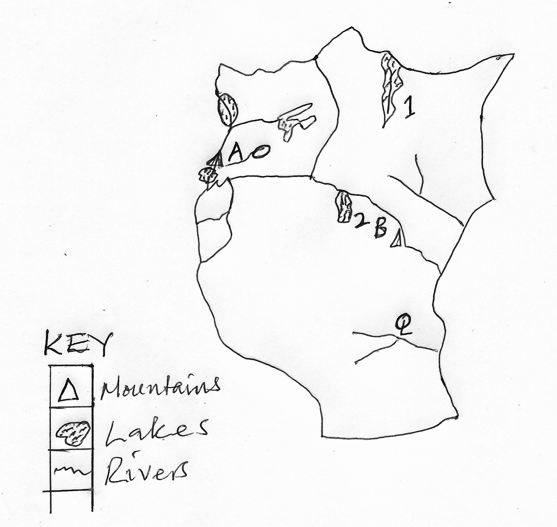 1
A
2 B
Q
KEY
Mountains
Lakes
Rivers